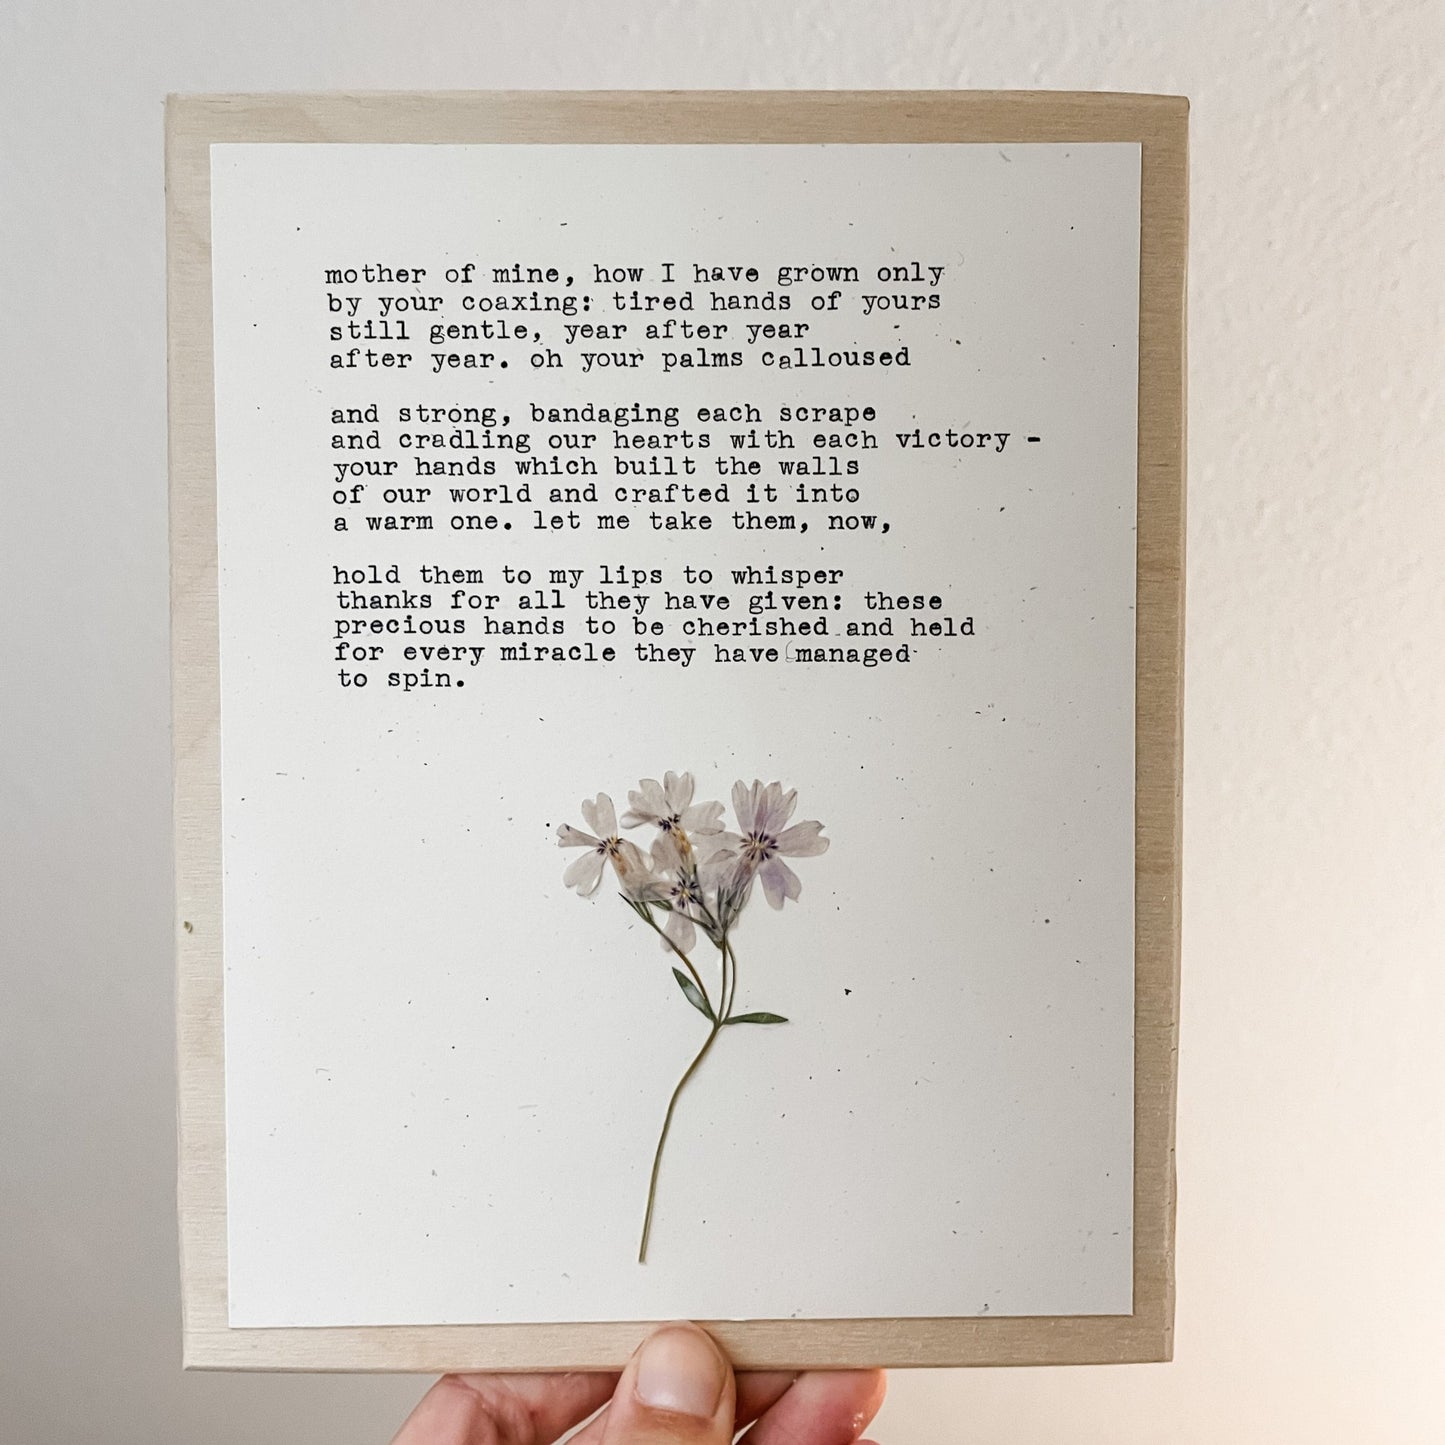 mother of mine, how I have grown only
by your coaxing: tired hands of yours
still gentle, year after year
after year. oh your palms calloused
and strong, bandaging each scrape
and cradling our hearts with each victory -
your hands which built the walls
of our world and crafted it into
a warm one. let me take them, now,
hold them to my lips to whisper
thanks for all they have given: these
precious hands to be cherished and held
for every miracle they have managed
to spin.